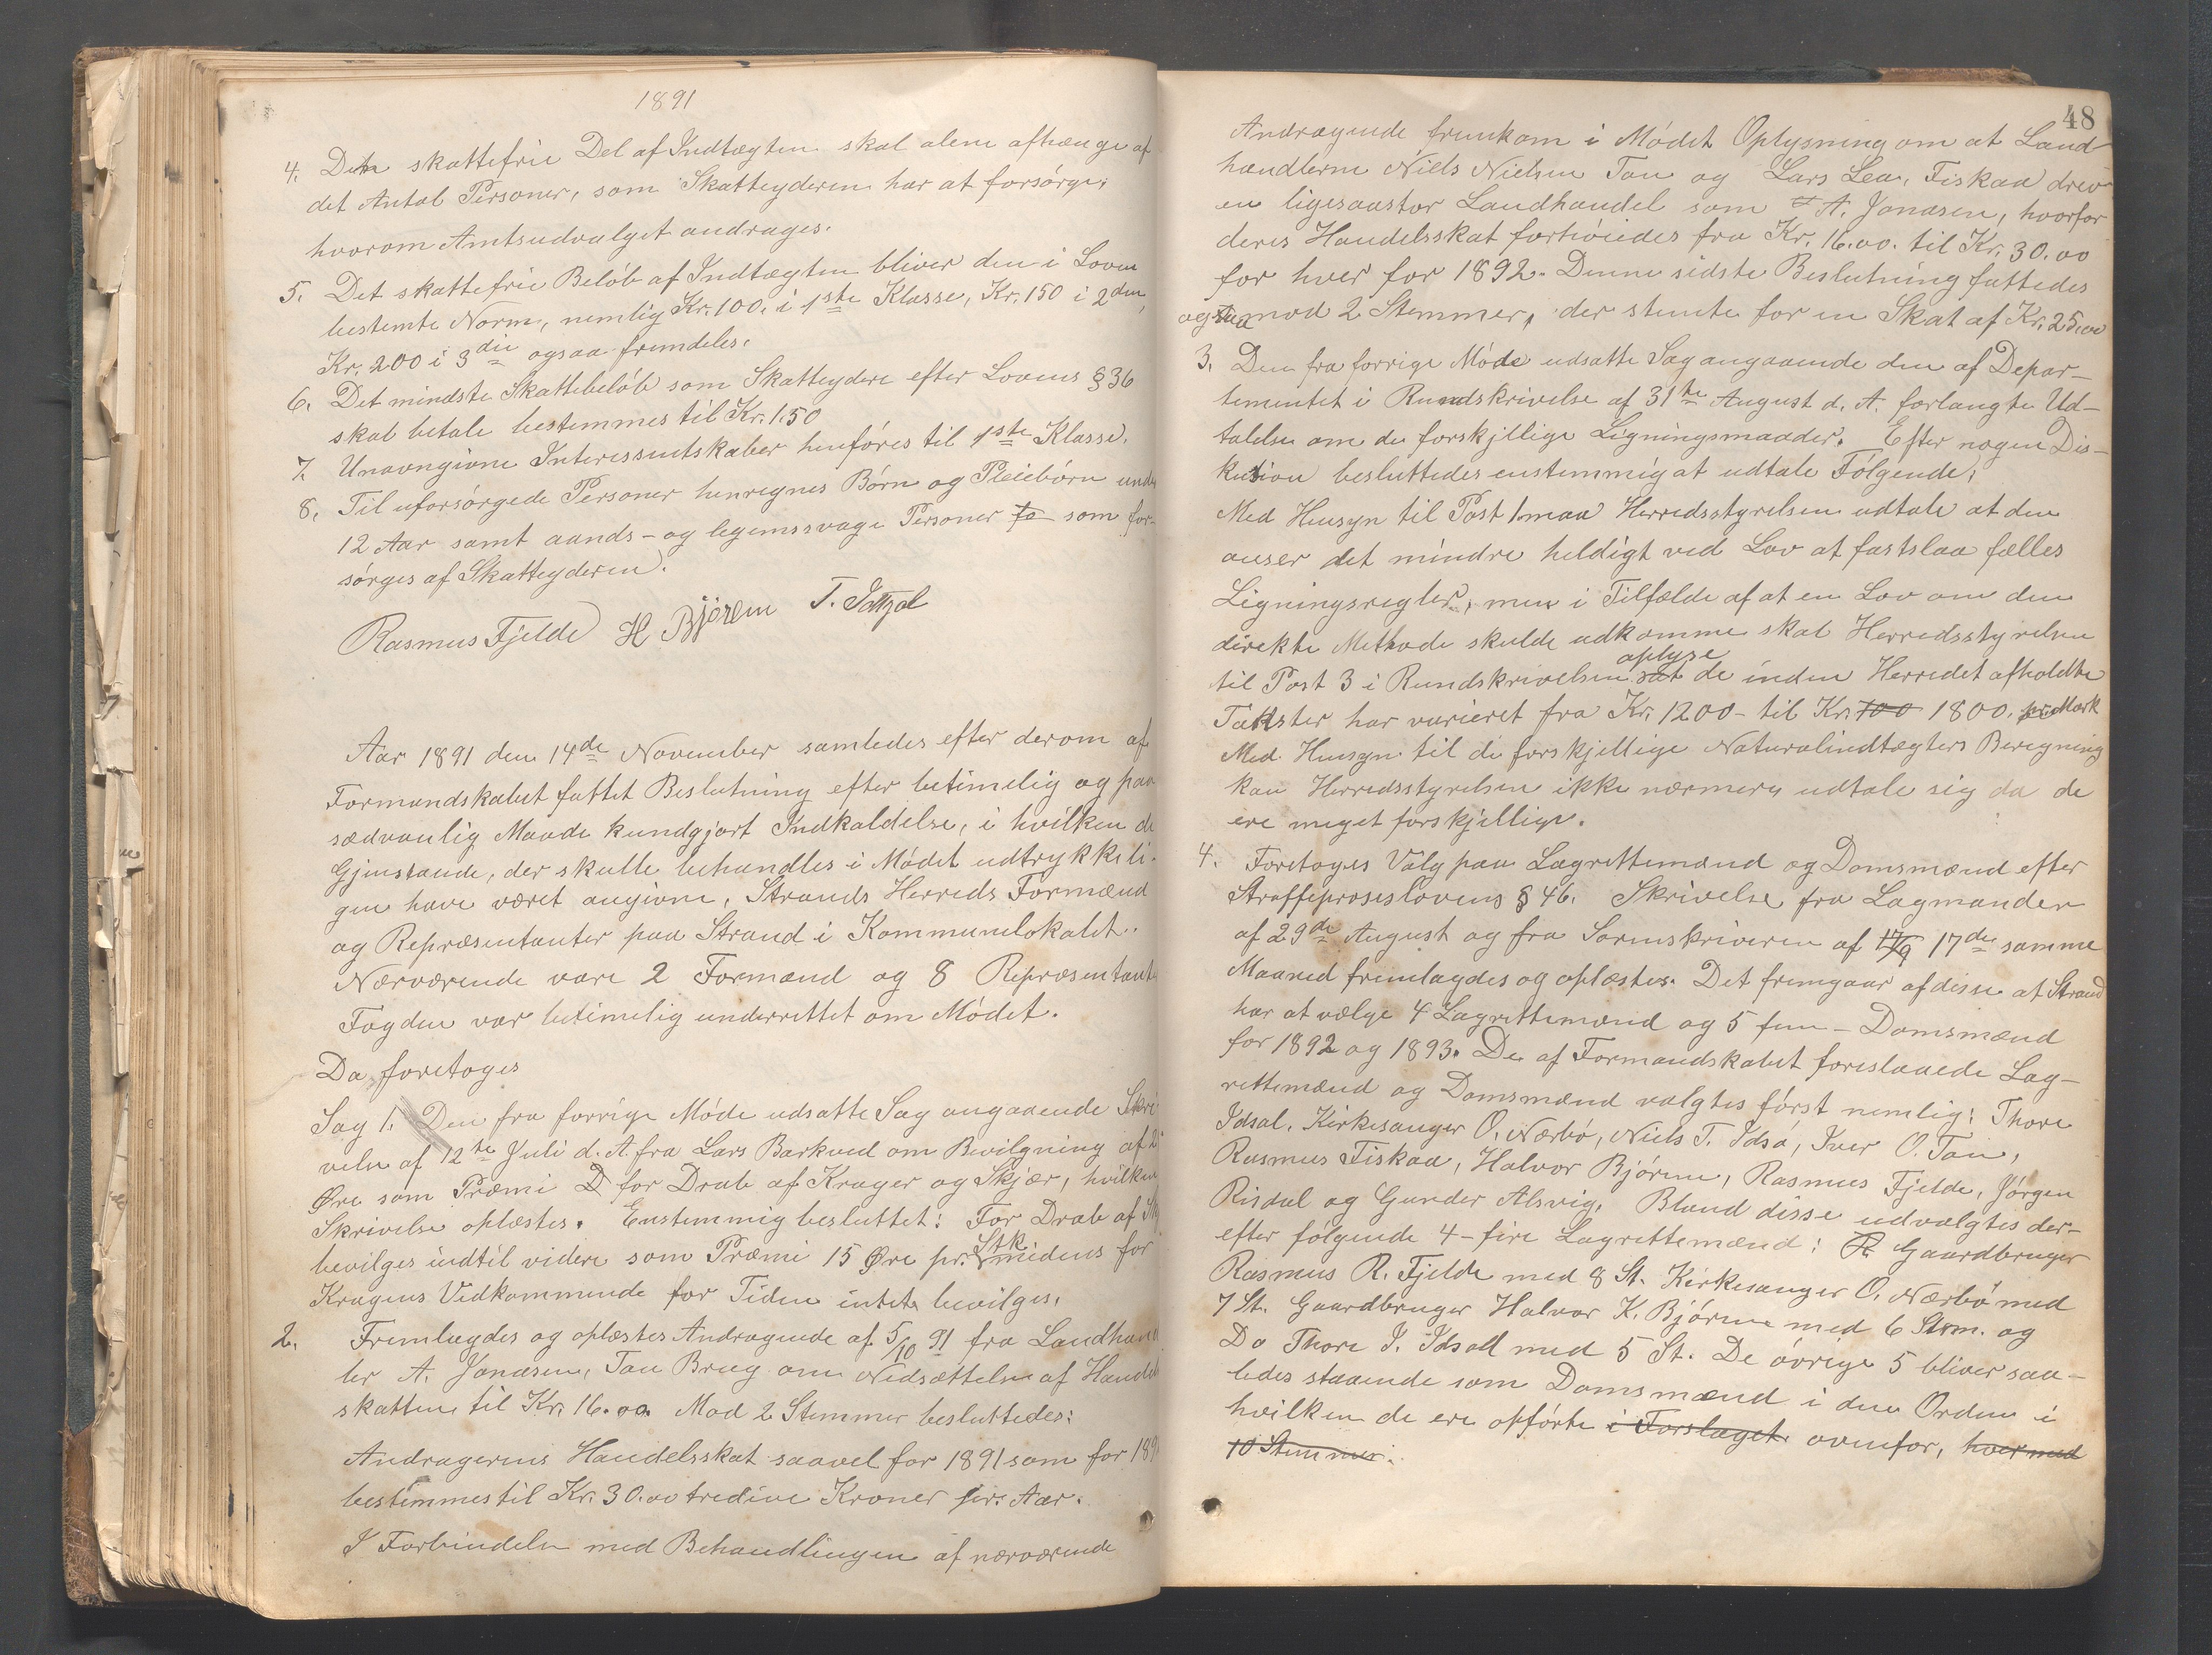 1891
4. Den skattefrie Del af Indtægten skal alene afhænge af
det Antal Personer, som Skatteyderen har at forsørge,
hvorom Amtsudvalget andrages.
5. Det skattefrie Beløb af Indtægten bliver den i Loven
bestemte Norm, nemlig Kr. 100. i 1ste Klasse, Kr. 150 i 2den,
Kr. 200 i 3die ogsaa fremdeles.
6. Det mindste Skattebeløb som Skatteydere efter Lovens § 36
skal betale bestemmes til Kr. 1.50
7. Unavngivne Interessentskaber henføres til 1ste Klasse.
8. Til uforsørgede Personer henregnes Børn og Pleiebørn under
12 Aar samt aands- og legemssvage Personer fo som for-
sørges af Skatteyderen.
Rasmus Fjelde H Bjørem T. Idsal
Aar 1891 den 14de November samledes efter derom af
Formandskabet fattet Beslutning efter betimelig og paa
sædvanlig Maade kundgjort Indkaldelse, i hvilken de
Gjenstande, der skulle behandles i Mødet udtrykkeli-
gen have været angivne, Strands Herreds Formænd
og Repræsentanter paa Strand i Kommunelokalet.
Nærværende vare 2 Formænd og 8 Repræsentant
Fogden var betimelig underrettet om Mødet.
Da foretoges
Sag 1. Den fra forrige Møde udsatte Sag angaaende Skri
velse af 12te Juli d. A. fra Lars Barkved om Bevilgning af 2
Øre som Præmi D for Drab af Krager og Skjær, hvilken
Skrivelse oplæstes. Enstemmig besluttet: For Drab af
bevilges indtil videre som Præmi 15 Øre pr. Stk midens for
Kragens Vidkommende for Tiden intet bevilges.
2. Fremlagdes og oplæstes Andragende af 5/10 91 fra Landhand
ler A. Jonasen, Tau Brug om Nedsættelse af Handels
skatten til Kr. 16.00. Mod 2 Stemmer besluttedes:
Andragerens Handelsskat saavel for 1891 som for 189
bestemmes til Kr. 30.00 tredive Kroner pr. Aar.
I Forbindelse med Behandlingen af nærværende
48
Andragende fremkom i Mødet Oplysning om at Land-
handlerne Niels Nielsen Tau og Lars Lea, Fiskaa drev
en ligesaastor Landhandel som A. Jonasen, hvorfor
deres Handelsskat forhøiedes fra Kr. 16.00. til Kr. 30.00
for hver for 1892. Denne sidste Beslutning fattedes
ogsaa mod 2 Stemmer, der stemte for en Skat af Kr. 25.00
3. Den fra forrige Møde udsatte Sag angaaende den af Depar-
tementet i Rundskrivelse af 31te August d. A. forlangte Ud-
talelse om de forskjellige Ligningsmaader. Efter nogen Dis-
kusion besluttedes enstemmig at udtale Følgende,
Med Hensyn til Post 1. maa Herredsstyrelsen udtale at den
anser det mindre heldigt ved Lov at fastslaa fælles
Ligningsregler, men i Tilfælde af at en Lov om den
direkte Methode skulde udkomme skal Herredsstyrelsen
til Post 3 i Rundskrivelsen oplyse at de inden Herredet afholdte
Takster har varieret fra Kr. 1200- til Kr. 700 1800. pr. Mark
Med Hensyn til de forskjellige Naturalindtægters Beregning
kan Herredsstyrelsen ikke nærmere udtale sig da de
ere meget forskjellige.
4. Foretoges Valg paa Lagrettemænd og Domsmænd efter
Straffeproseslovens § 46. Skrivelse fra Lagmanden
af 29de August og fra Sorenskriveren af 17/9 17de samme
Maaned fremlagdes og oplæstes. Det fremgaar af disse at Strand
har at vælge 4 Lagrettemænd og 5 fem - Domsmænd
for 1892 og 1893. De af Formandskabet foreslaaede Lag-
rettemænd og Domsmænd valgtes først nemlig: Thore
Idsal, Kirkesanger O. Nærbø, Niels T. Idsø, Iver O. Tau,
Rasmus Fiskaa, Halvor Bjøren, Rasmus Fjelde, Jørgen
Risdal og Gunder Alsvig. Bland disse udvalgtes der-
efter følgende 4 - fire Lagrettemænd: R Gaardbruger
Rasmus R. Fjelde med 8 St. Kirkesanger O. Nærbø med
7 St. Gaardbruger Halvor K. Bjøren med 6 Stem. og
Do Thore I. Idsal med 5 St. De øvrige 5 bliver saa-
ledes staaende som Domsmænd i den Orden i
hvilken de ere opførte i Forslaget ovenfor, hver med
10 Stemmer.